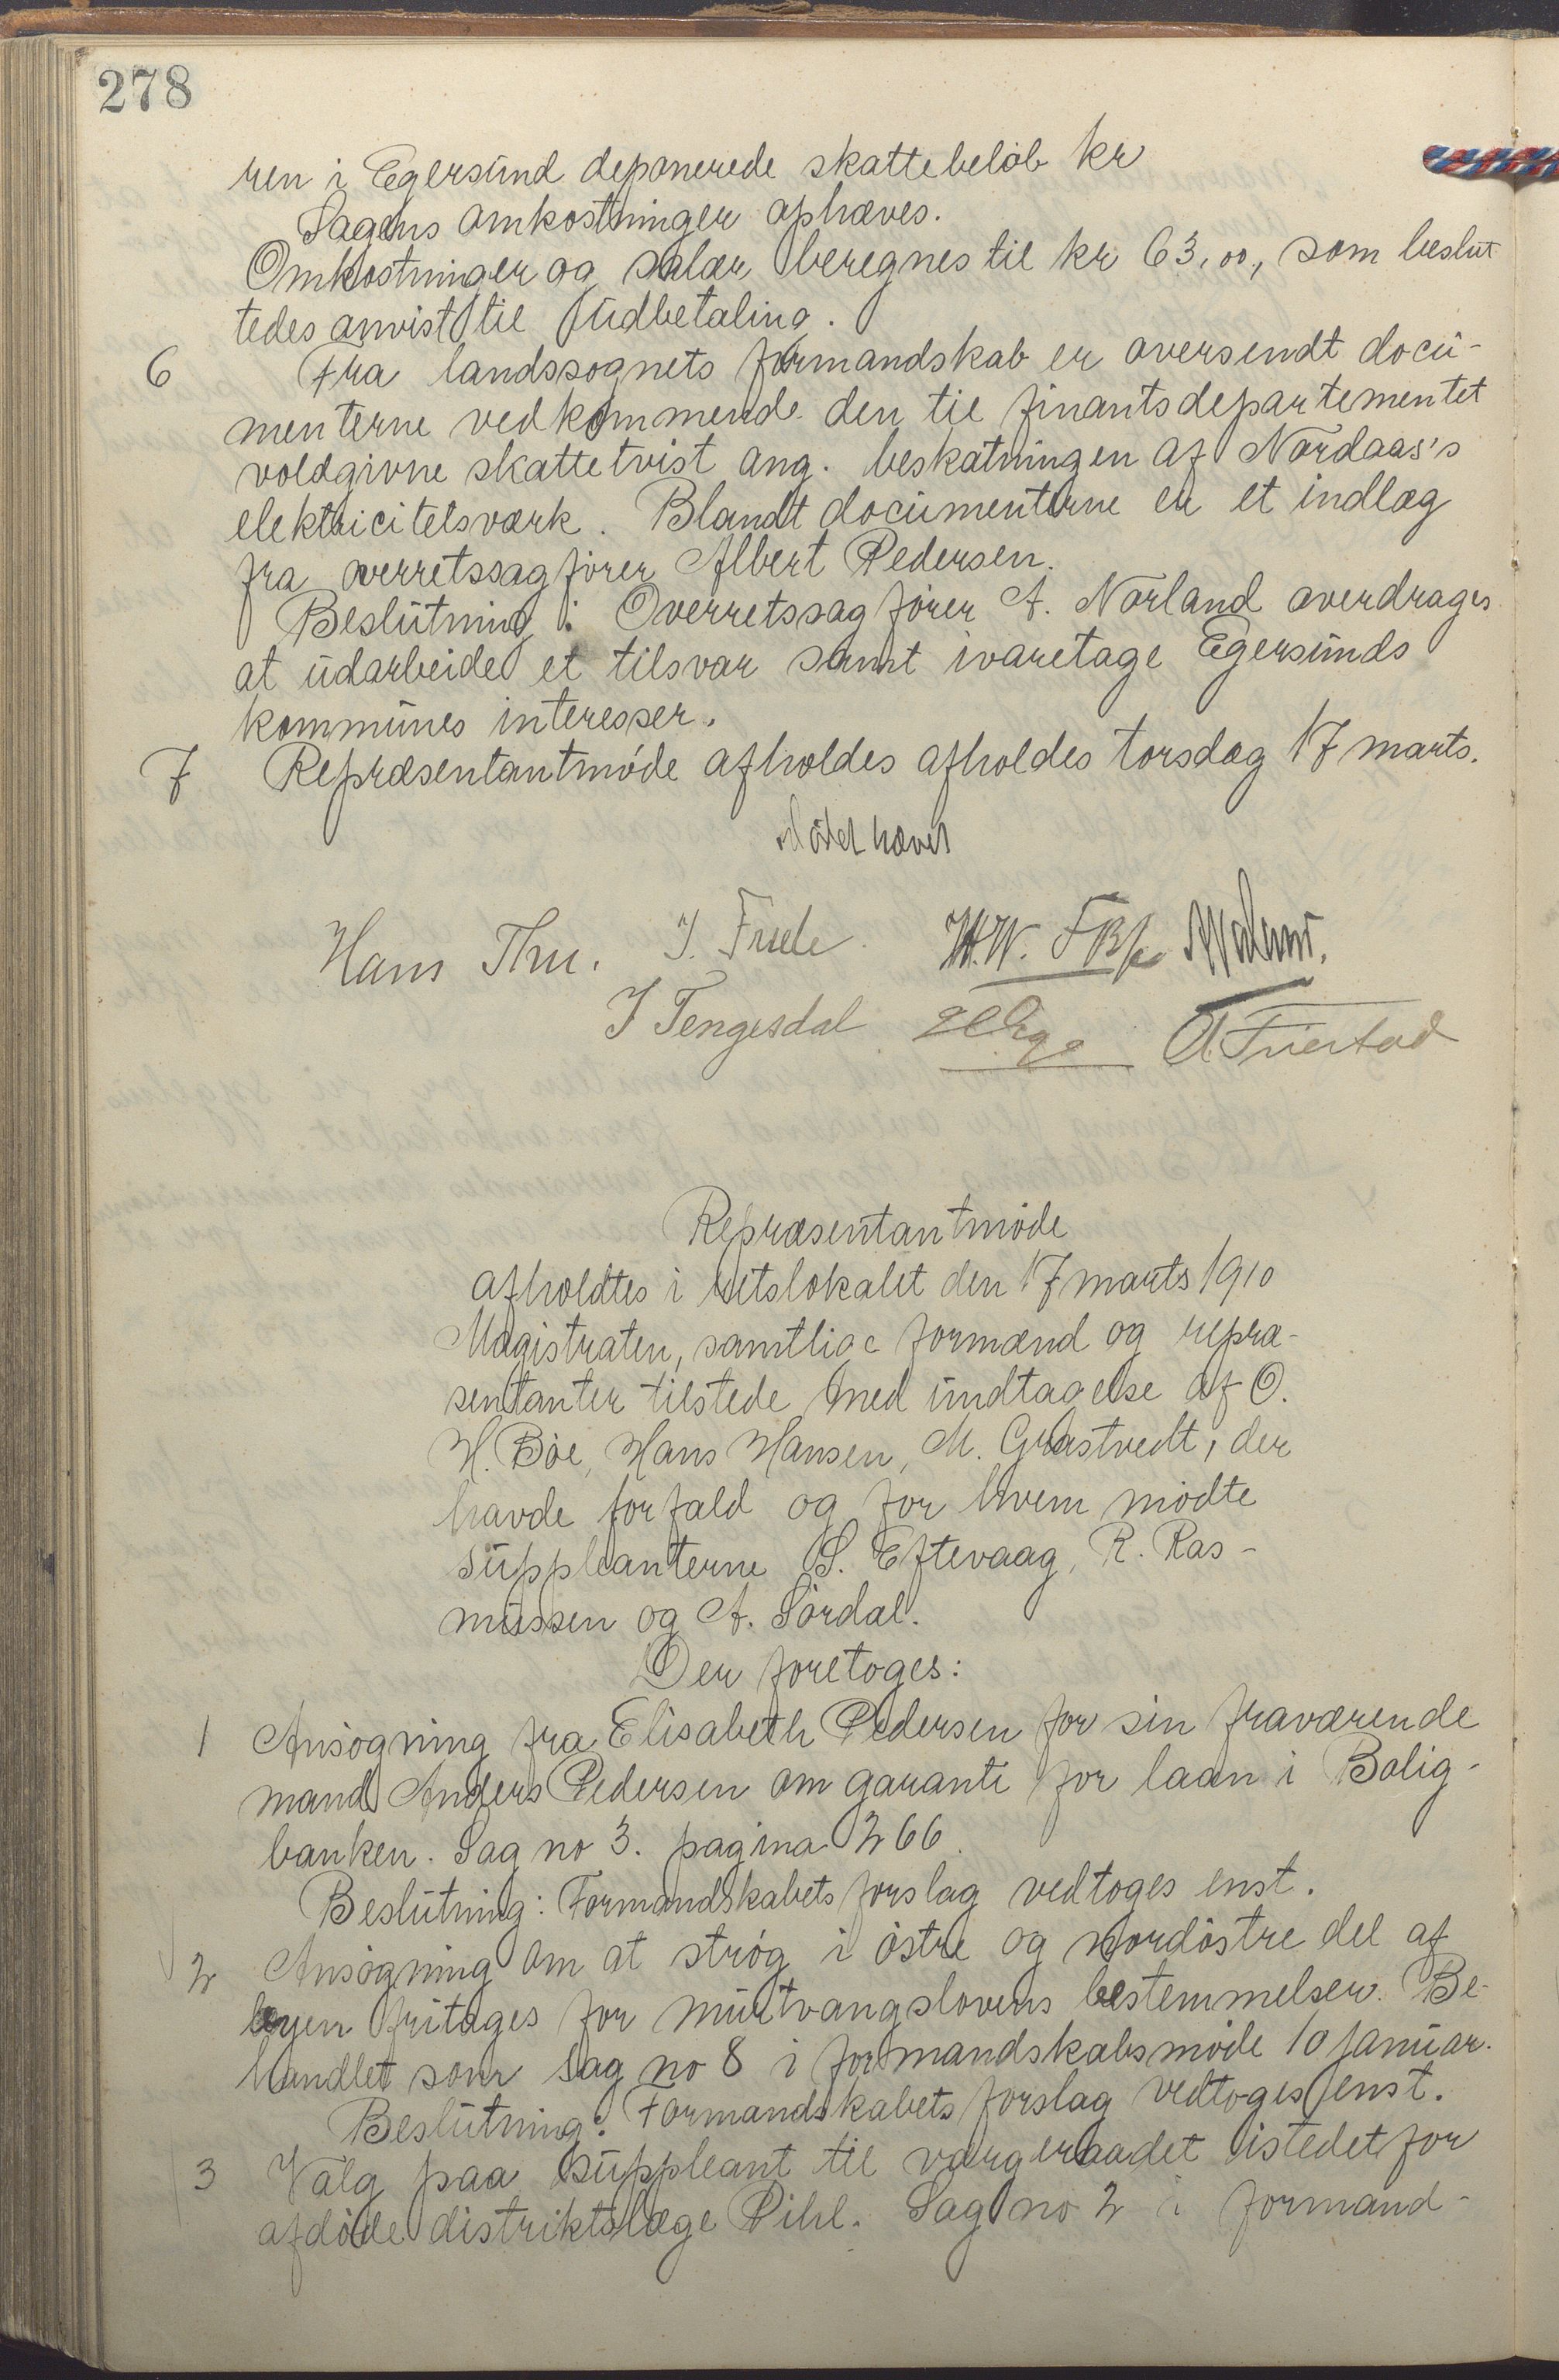 278
ren i Egersund deponerede skattebeløb kr
Sagens omkostninger ophæves.
Omkostninger og salær beregnes til kr 63,00, som beslut
tedes anvist til udbetaling.
6 Fra landssognets formandskab er oversendt docu-
menterne vedkommende den til finantsdepartementet
voldgivne skattetvist ang. beskatningen af Nordaas's
elektricitetsværk. Blandt documenterne er et indlæg
fra overretssagfører Albert Pedersen.
Beslutning: Overretssagfører A. Norland overdrages
at udarbeide et tilsvar samt ivaretage Egersunds
kommunes interesser.
7 Repræsentantmøde afholdes afholdes torsdag 17 marts.
Mødet hævet
Hans Thu. I. Fuele W.W.
J Tengesdal A. Tuestad
Repræsentantmøde
afholdtes i retslokalet den 17 marts 1910
Magistraten, samtlige formænd og repræ-
sentanter tilstede med undtagelse af O.
H. Bøe, Hans Hansen, M. Grastvedt, der
havde forfald og for hvem mødte
suppleanterne S. Eftevaag, R. Ras-
mussen og A. Sørdal.
Der foretoges:
1 Ansøgning fra Elisabeth Pedersen for sin fraværende
mand Anders Pedersen om garanti for laan i Bolig-
banken. Sag no 3. pagina 266.
Beslutning: Formandskabets forslag vedtoges enst.
2 Ansøgning om at strøg i østre og nordøstre del af
byen fritages for murtvangslovens bestemmelser. Be-
handlet som sag no 8 i formandskabsmøde 10 januar.
Beslutning: Formandskabets forslag vedtoges enst.
3 Valg paa suppleant til værgeraadet istedet for
afdøde distriktslæge Pihl. Sag no 2 i formand-